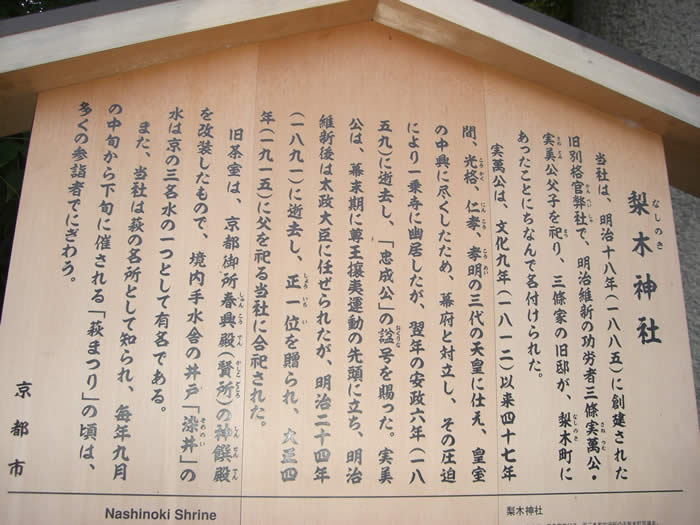 梨木神社
なしのき
当社は、明治十八年(一八八五)に創建された
旧別格官弊社で、明治維新の功労者三條実萬公・
かんぺいしゃ
さねつむ
実美公父子を祀り、三條家の旧邸が、梨木町に
さねとみ
まつ
なしのき
あったことにちなんで名付けられた。
実萬公は、文化九年(一八一二)以来四十七年
間、光格、仁孝、孝明の三代の天皇に仕え、皇室
こうかく
にんこう
こうめい
の中興に尽くしたため、幕府と対立し、その圧迫
により一乗寺に幽居したが、翌年の安政六年(一八
五九)に逝去し、「忠成公」の諡号を賜った。実美
おくりな
公は、幕末期に尊王攘夷運動の先頭に立ち、明治
維新後は太政大臣に任ぜられたが、明治二十四年
(一八九一)に逝去し、正一位を贈られ、大正四
しょういちい
年(一九一五)に父を祀る当社に合祀された。
旧茶室は、京都御所春興殿(賢所)の神饌殿
しゅんこうでん
かしこどころ
しんせんでん
を改装したもので、境内手水舎の井戸「染井」の
そめのい
水は京の三名水の一つとして有名である。
また、当社は萩の名所として知られ、毎年九月
の中旬から下旬に催される「萩まつり」の頃は、
多くの参詣者でにぎわう。
京都市
Nashinoki Shrine
梨木神社